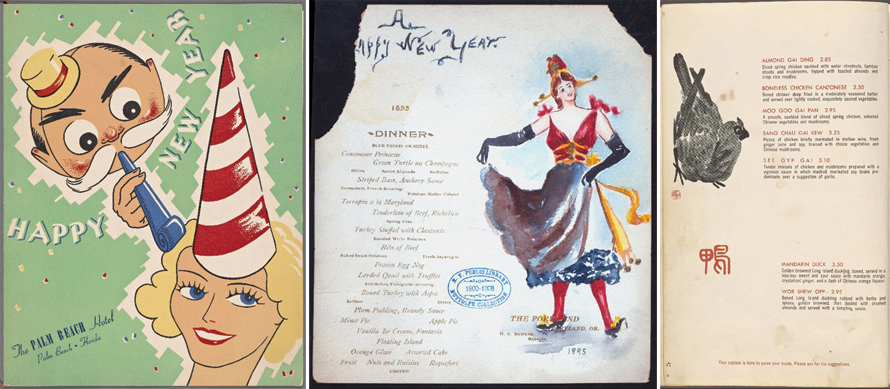 HAPPY
NEW YEAR
The PALM BEACH Hotel
Palm Beach • Florida
A
Happy New Year.
1895
DINNER
BLUE POINTS ON SHELL
Consomme Princesse
Green Turtle au Champagne
Olives
Salted Almonds
Radishes
Striped Bass, Anchovy Sauce
Terrapin a la Maryland
Tenderloin of Beef, Richelieu
Spring Peas
Turkey Stuffed with Chestnuts
Mashed White Potatoes
Ribs of Beef
Baked Sweet Potatoes
French Asparagus
Frozen Egg Nog
Larded Quail with Truffles
Boned Turkey with Aspic
Lettuce
Celery
Plum Pudding, Brandy Sauce
Mince Pie
Apple Pie
Vanilla Ice Cream, Fantasia
Floating Island
Orange Glace
Assorted Cake
Fruit
Nuts and Raisins
Roquefort
COFFEE
N. Y. PUBLIC LIBRARY
1900-1908
BUTTOLPH COLLECTION
THE PORTLAND
PORTLAND, OR.
Manager
1895
ALMOND GAI DING 2.85
Diced spring chicken sauteed with water chestnuts, bamboo
shoots and mushrooms, topped with toasted almonds and
crisp rice noodles.
BONELESS CHICKEN CANTONESE 3.50
Boned chicken deep fried in a moderately seasoned batter
and served over lightly cooked, exquisitely sauced vegetables.
MOO GOO GAI PAN 2.95
A smooth, sauteed blend of sliced spring chicken, selected
Chinese vegetables and mushrooms.
SANG CHAU GAI KEW 3.25
Pieces of chicken briefly marinated in mellow wine, fresh
ginger juice and soy, braised with choice vegetables and
Chinese mushrooms.
SEE GYP GAI 3.10
Tender morsels of chicken and mushrooms prepared with a
vaporous sauce in which mashed, marinated soy beans pre-
dominate over a suggestion of garlic.
鴨
MANDARIN DUCK 3.50
Golden browned Long Island duckling, boned, served in a
luscious sweet and sour sauce with mandarin orange,
crystalized ginger, and a dash of Chinese orange liqueur.
WOR SHEW OPP 2.95
Boned Long Island duckling rubbed with herbs and
spices, golden browned, then dusted with crushed
almonds and served with a tempting sauce.
Your captain is here to serve your needs. Please ask for his suggestions.